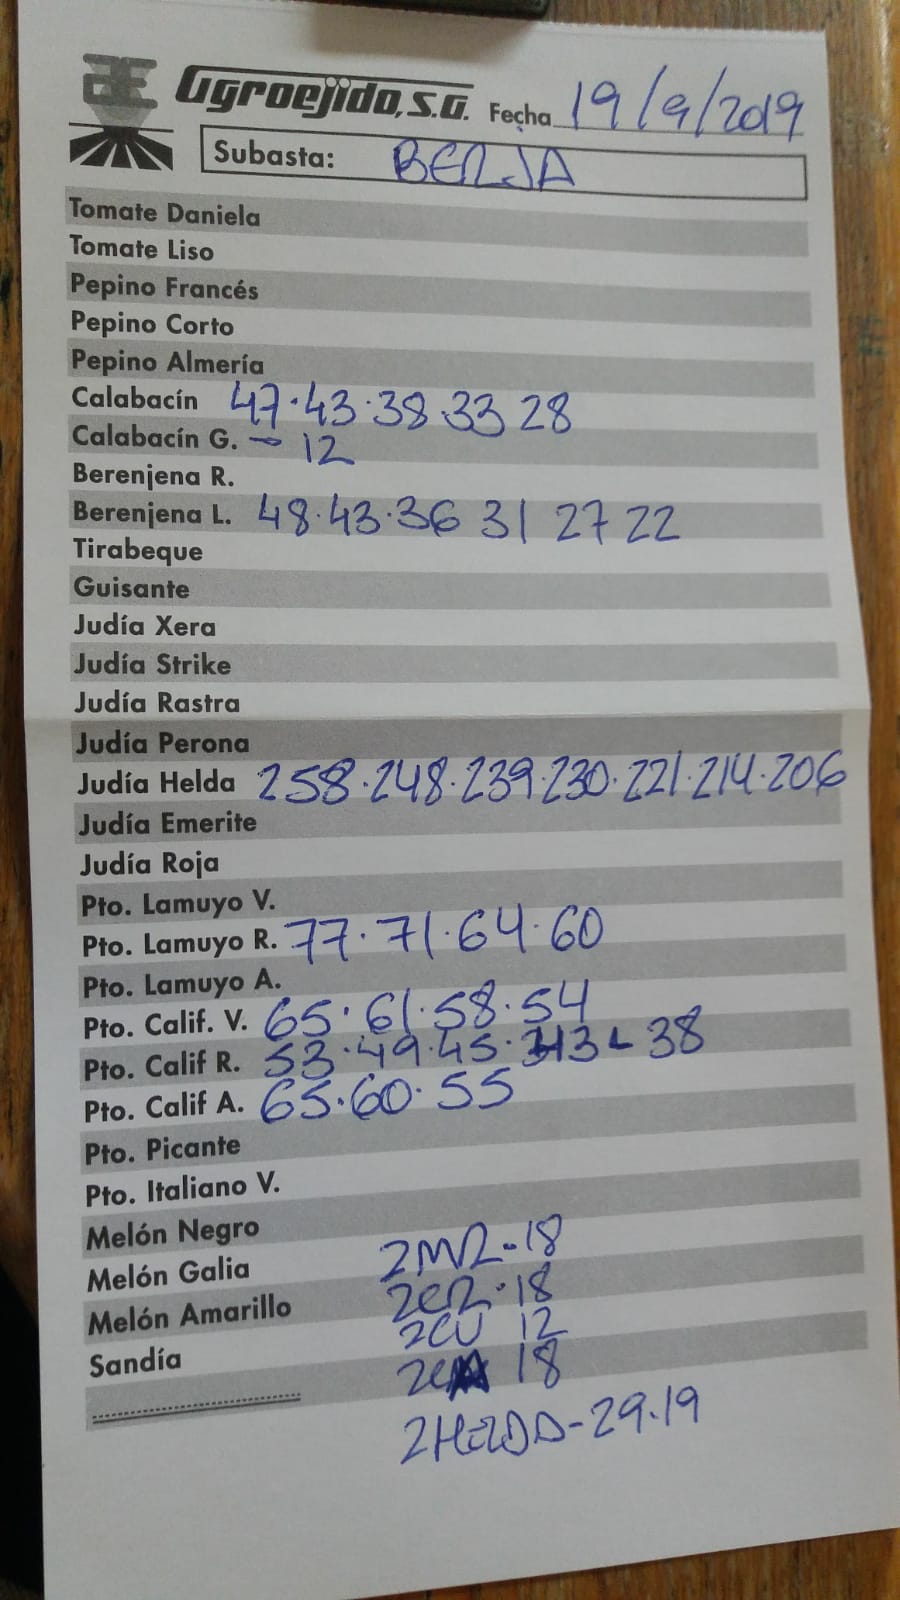 Agroejido, S.A. Fecha 19/9/2019
Subasta: BERJA
Tomate Daniela
Tomate Liso
Pepino Francés
Pepino Corto
Pepino Almería
Calabacín 47.43.38.33 28
Calabacín G. - 12
Berenjena R.
Berenjena L. 48.43.36 31 27 22
Tirabeque
Guisante
Judía Xera
Judía Strike
Judía Rastra
Judía Perona
Judía Helda 258.248.239.230.221.214.206
Judía Emerite
Judía Roja
Pto. Lamuyo V.
Pto. Lamuyo R. 77.71.64.60
Pto. Lamuyo A.
Pto. Calif. V. 65.61.58.54
Pto. Calif R. 53.49.45. 38
Pto. Calif A. 65.60.55
Pto. Picante
Pto. Italiano V.
Melón Negro
Melón Galia 2MR-18
Melón Amarillo 2CR.18
Sandía 2CV 12
18
29.19